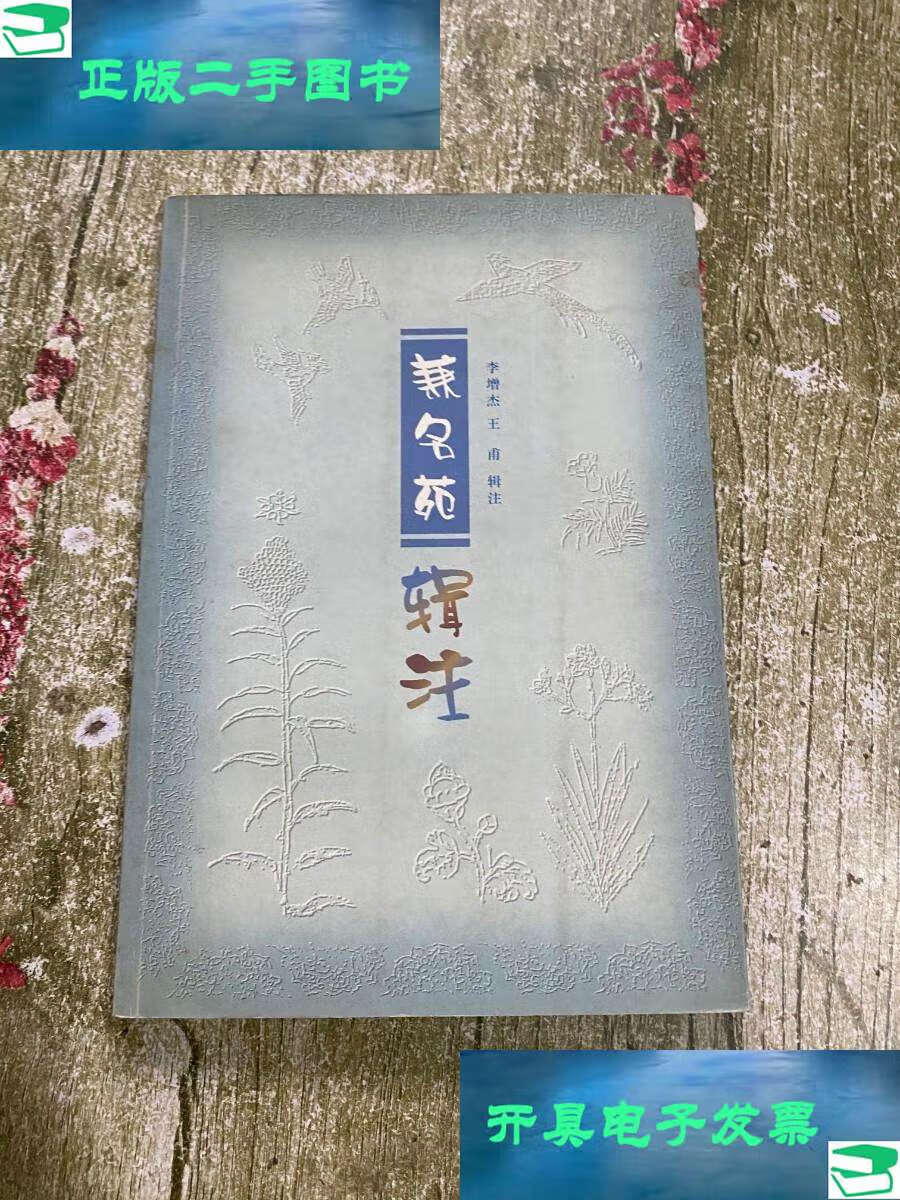 正版二手图书
兼名苑
辑注
李增杰 王 甫 辑注
开具电子发票